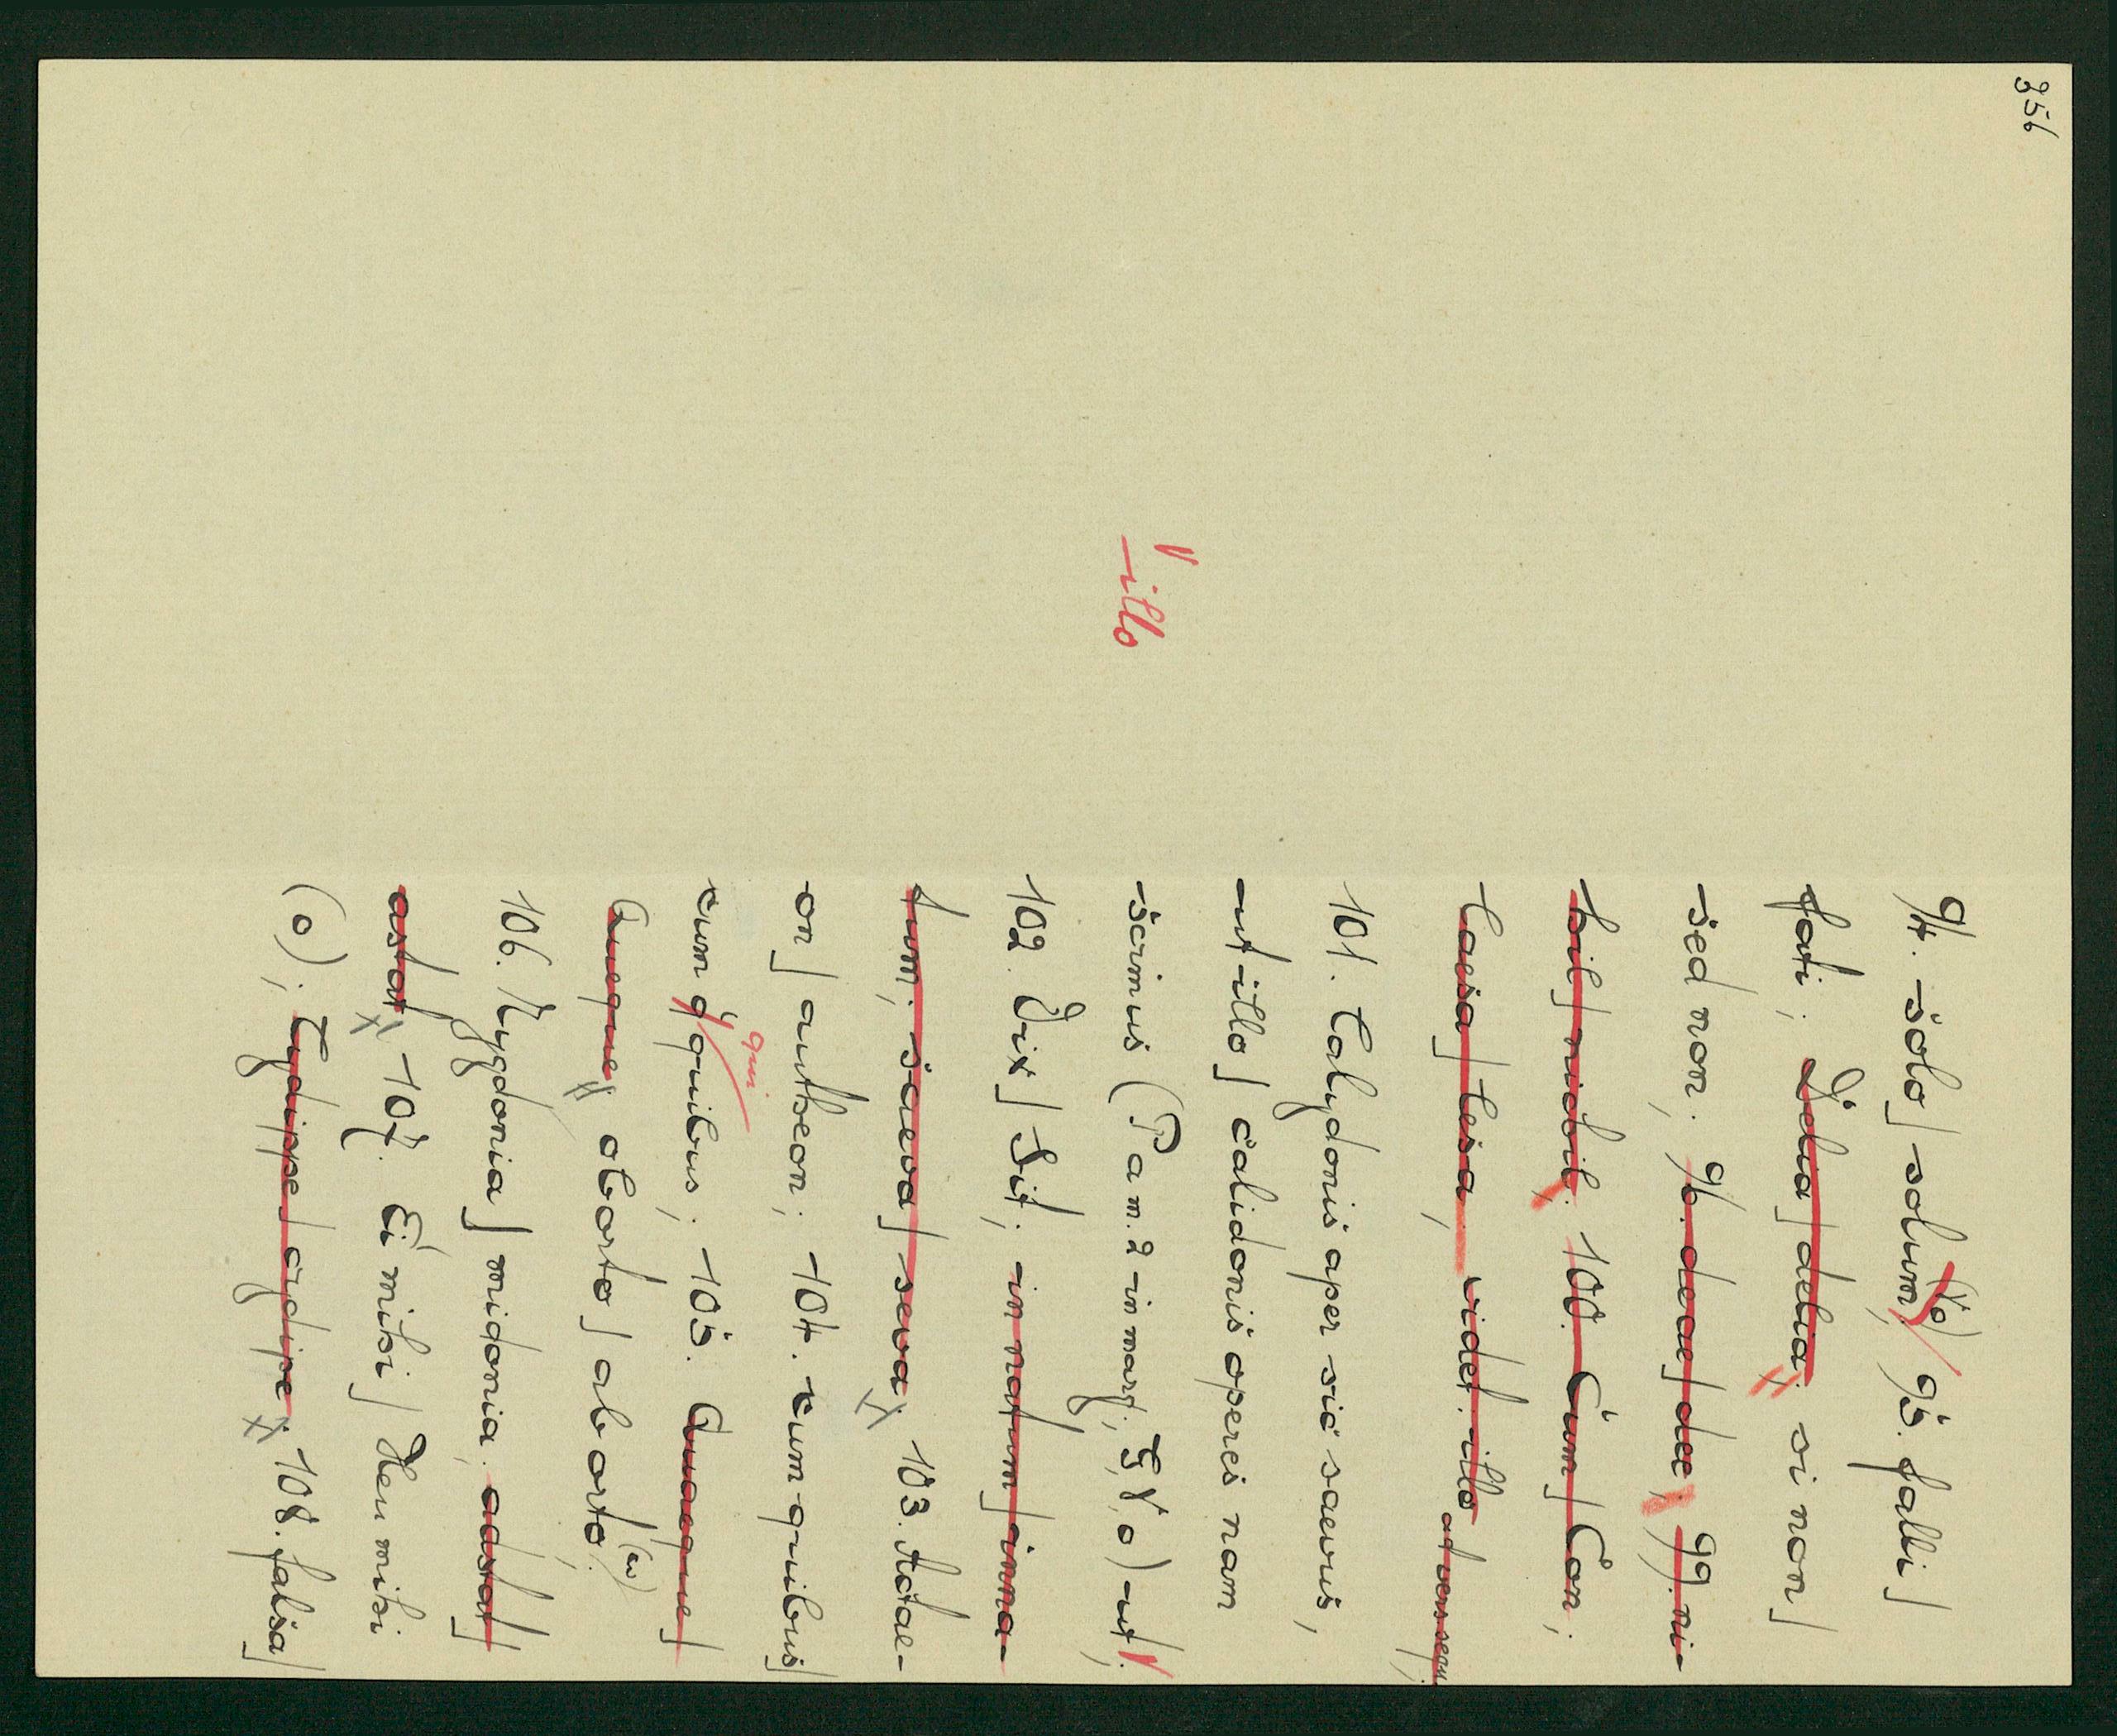 356
94. solo] solum (Vo) 95. falli]
fati; Delia] delia. si non]
sed non; 96. deae] dee; 99. ni-
hil] nichil. 100. Cum] Con;
Caesa] Cesa; videt. illo ad vers. sequ.;
101. Calydonis aper sic saevus,
ut illo] calidonis operes nam
scimus (Pa m. 2 in marg.; V, o) ut;
illo
102. Vix] Sit; in natum] inna-
tum; saeva] seva. 103. Actae-
on] antheon; 104. cum quibus]
cum q quibus; 105. Quaeque]
qui
Queque; oborto] ab orto (a).
106. Mygdonia] midonia; adstat]
astat. 107. Ei mihi] Heu mihi
(o); Cydippe] cydipe. 108. falsa]